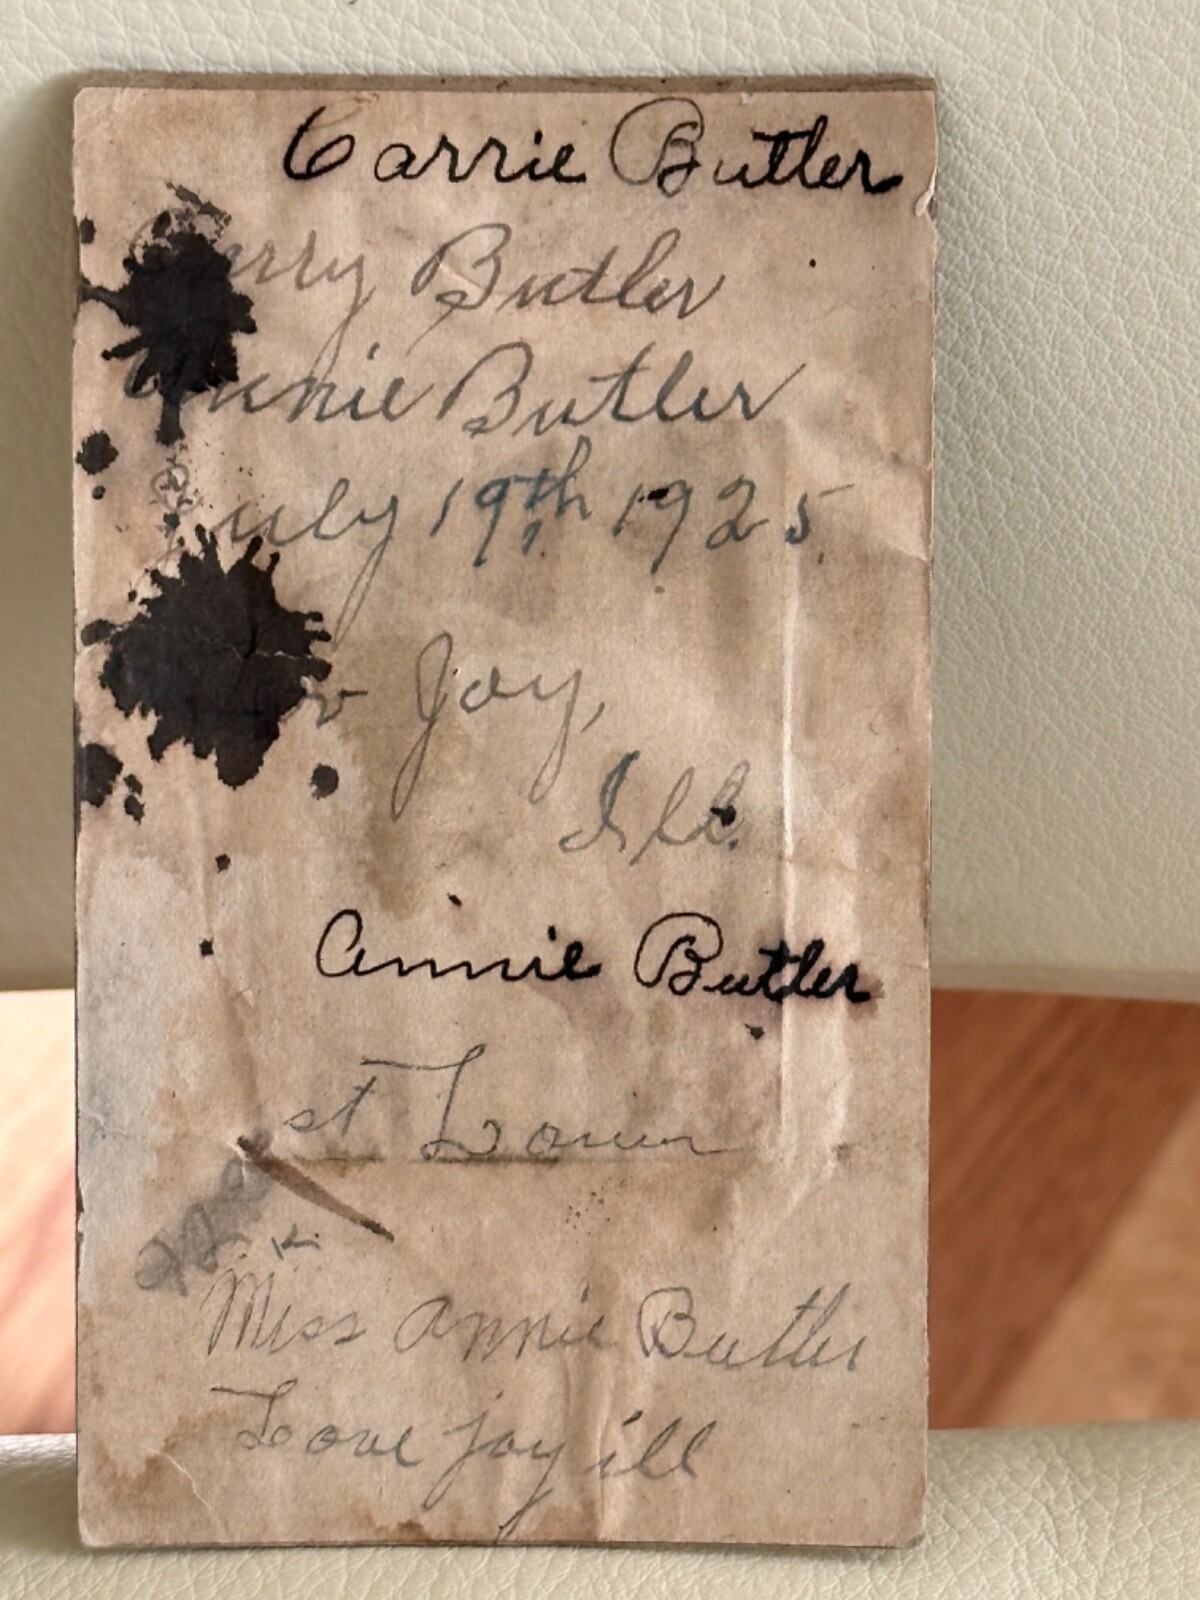 Carrie Butler
Butler
Annie Butler
July 19th 1925
Joy,
Ill.
Annie Butler
st Louis
Miss Annie Butler
Love joy ill